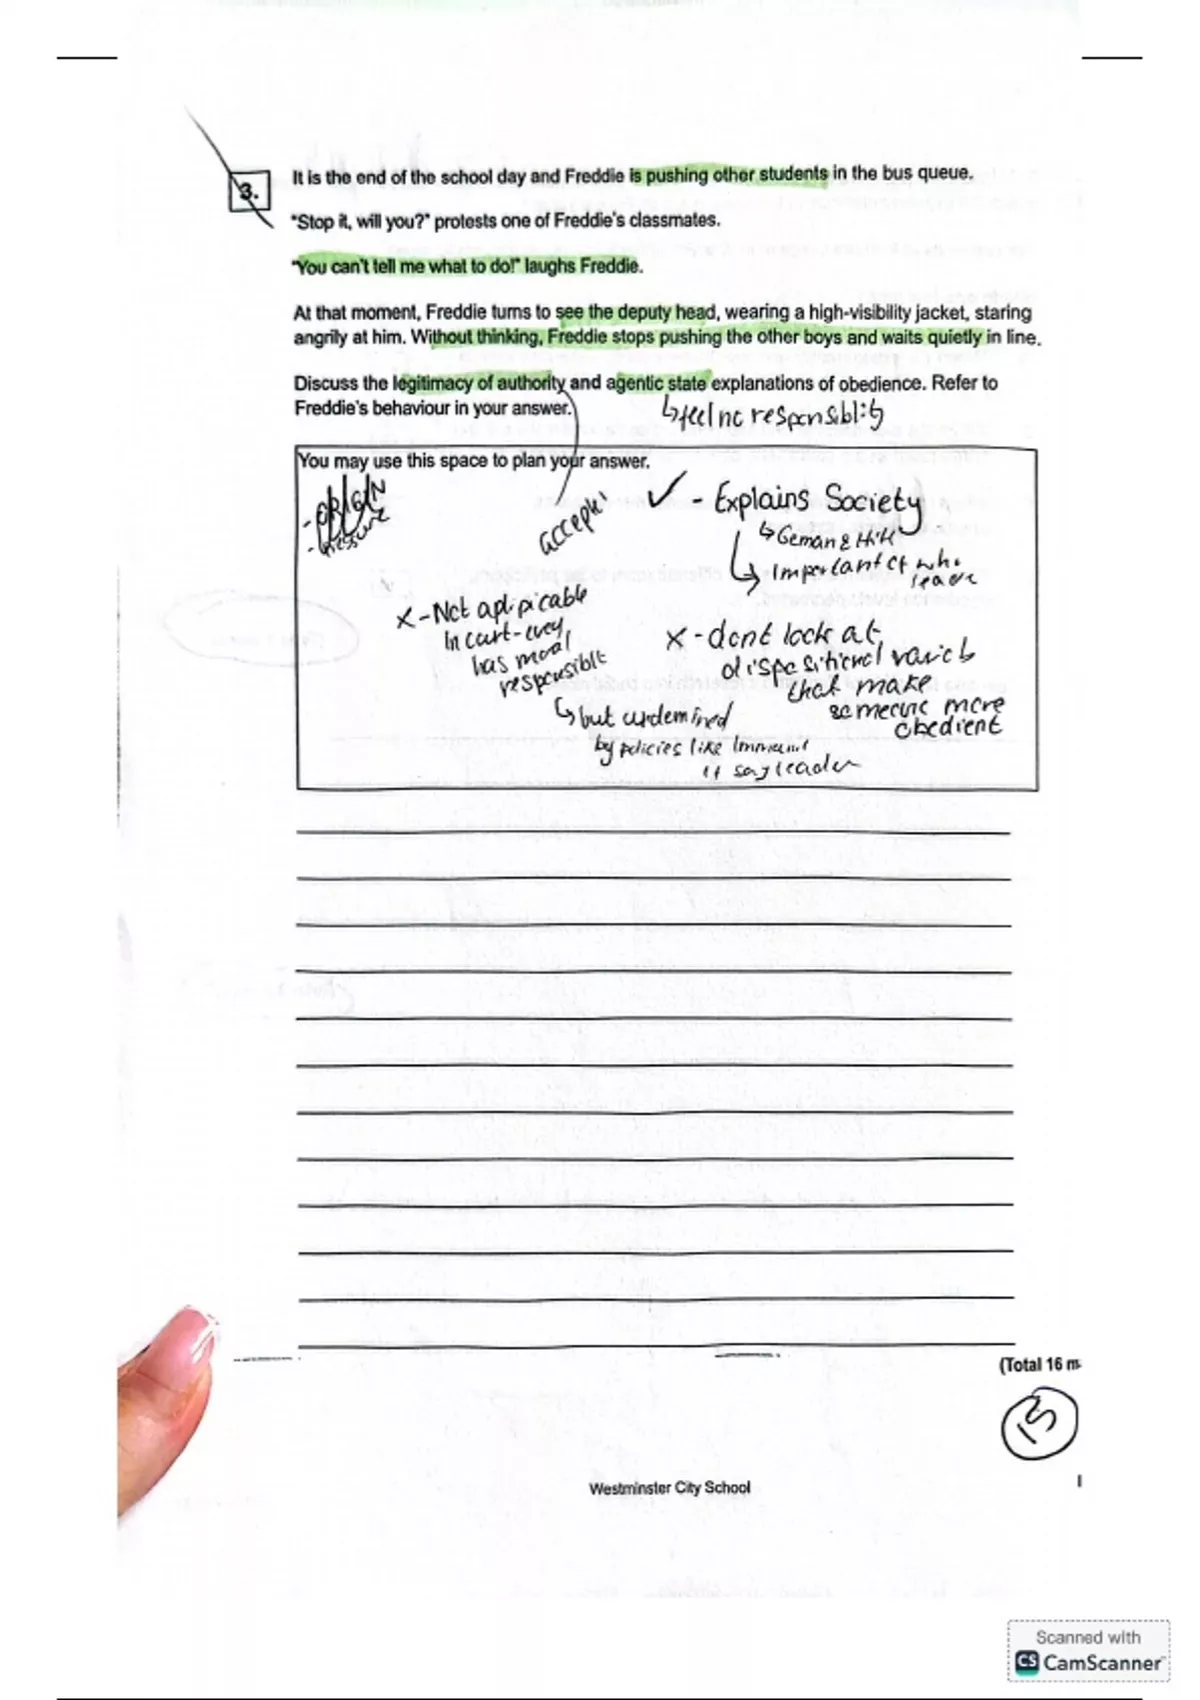 3.
It is the end of the school day and Freddie is pushing other students in the bus queue.
"Stop it, will you?" protests one of Freddie's classmates.
"You can't tell me what to do!" laughs Freddie.
At that moment, Freddie turns to see the deputy head, wearing a high-visibility jacket, staring
angrily at him. Without thinking, Freddie stops pushing the other boys and waits quietly in line.
Discuss the legitimacy of authority and agentic state explanations of obedience. Refer to
Freddie's behaviour in your answer.
↳feel no responsiblity
You may use this space to plan your answer.
✓ - Explains Society
↳ German &
↳ important of who
leader
x - Not aplipicable
In court - every
has moral
responsible
↳ but undemined
by policies like
if say leader
x - dont look at
dispositional
that make
someone more
obedient
(Total 16 m
13
Westminster City School
Scanned with
CS CamScanner